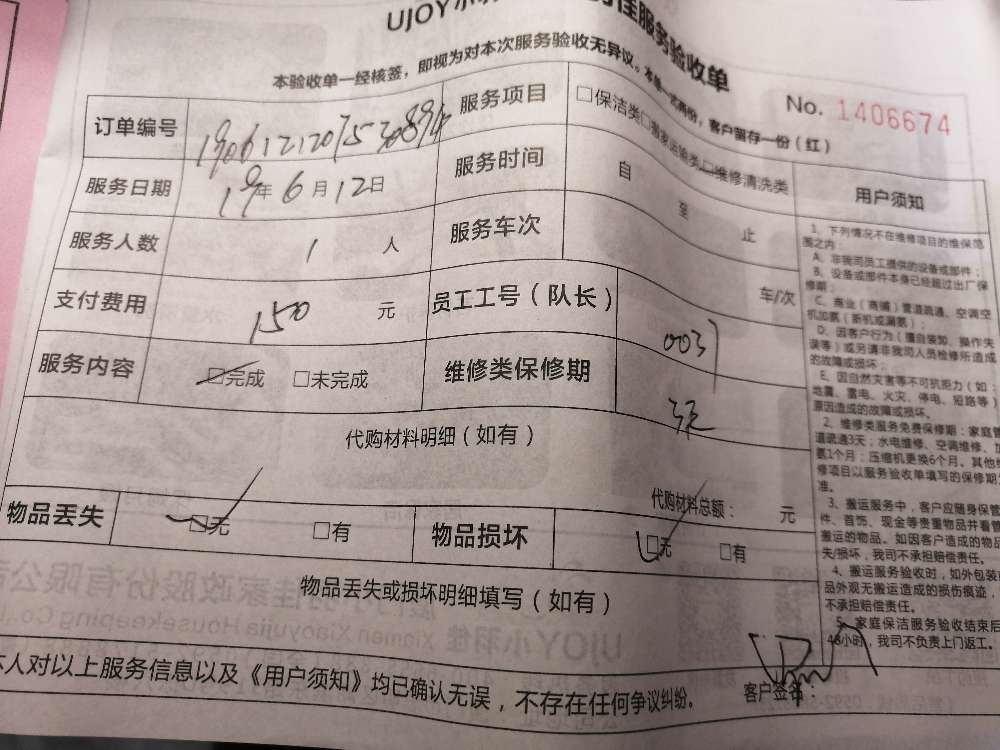 UJOY小羽佳服务验收单
本验收单一经核签，即视为对本次服务验收无异议。本单一式两份，客户留存一份（红）
No. 1406674
订单编号
服务项目 □保洁类□搬家运输类□维修清洗类
服务日期 19年6月12日
服务时间 自 至 止
服务人数 1 人
服务车次 车/次
支付费用 150 元
员工工号（队长） 0037
服务内容 □完成 □未完成
维修类保修期 3天
代购材料明细（如有）
代购材料总额： 元
物品丢失 □无 □有
物品损坏 □无 □有
物品丢失或损坏明细填写（如有）
本人对以上服务信息以及《用户须知》均已确认无误，不存在任何争议纠纷。
客户签名：
用户须知
1、下列情况不在维修项目的维保范
围之内：
A、非我司员工提供的设备或部件；
B、设备或部件本身已经超过出厂保
修期；
C、商业（商铺）管道疏通、空调空
机加氨（新机或漏氨）；
D、因客户行为（擅自装卸、操作失
误等）或另请非我司人员检修所造成
的故障或损坏；
E、因自然灾害等不可抗拒力（如：
地震、雷电、火灾、停电、短路等）
原因造成的故障或损坏。
2、维修类服务免费保修期：家庭管
道疏通3天；水电维修、空调维修、加
氨1个月；压缩机更换6个月。其他维
修项目以服务验收单填写的保修期为
准。
3、搬运服务中，客户应随身保管
件、首饰、现金等贵重物品并看管
搬运的物品。如因客户造成的物品
失/损坏，我司不承担赔偿责任。
4、搬运服务验收时，如外包装
品外观无搬运造成的损伤痕迹，
不承担赔偿责任。
5、家庭保洁服务验收结束后
48小时，我司不负责上门返工。